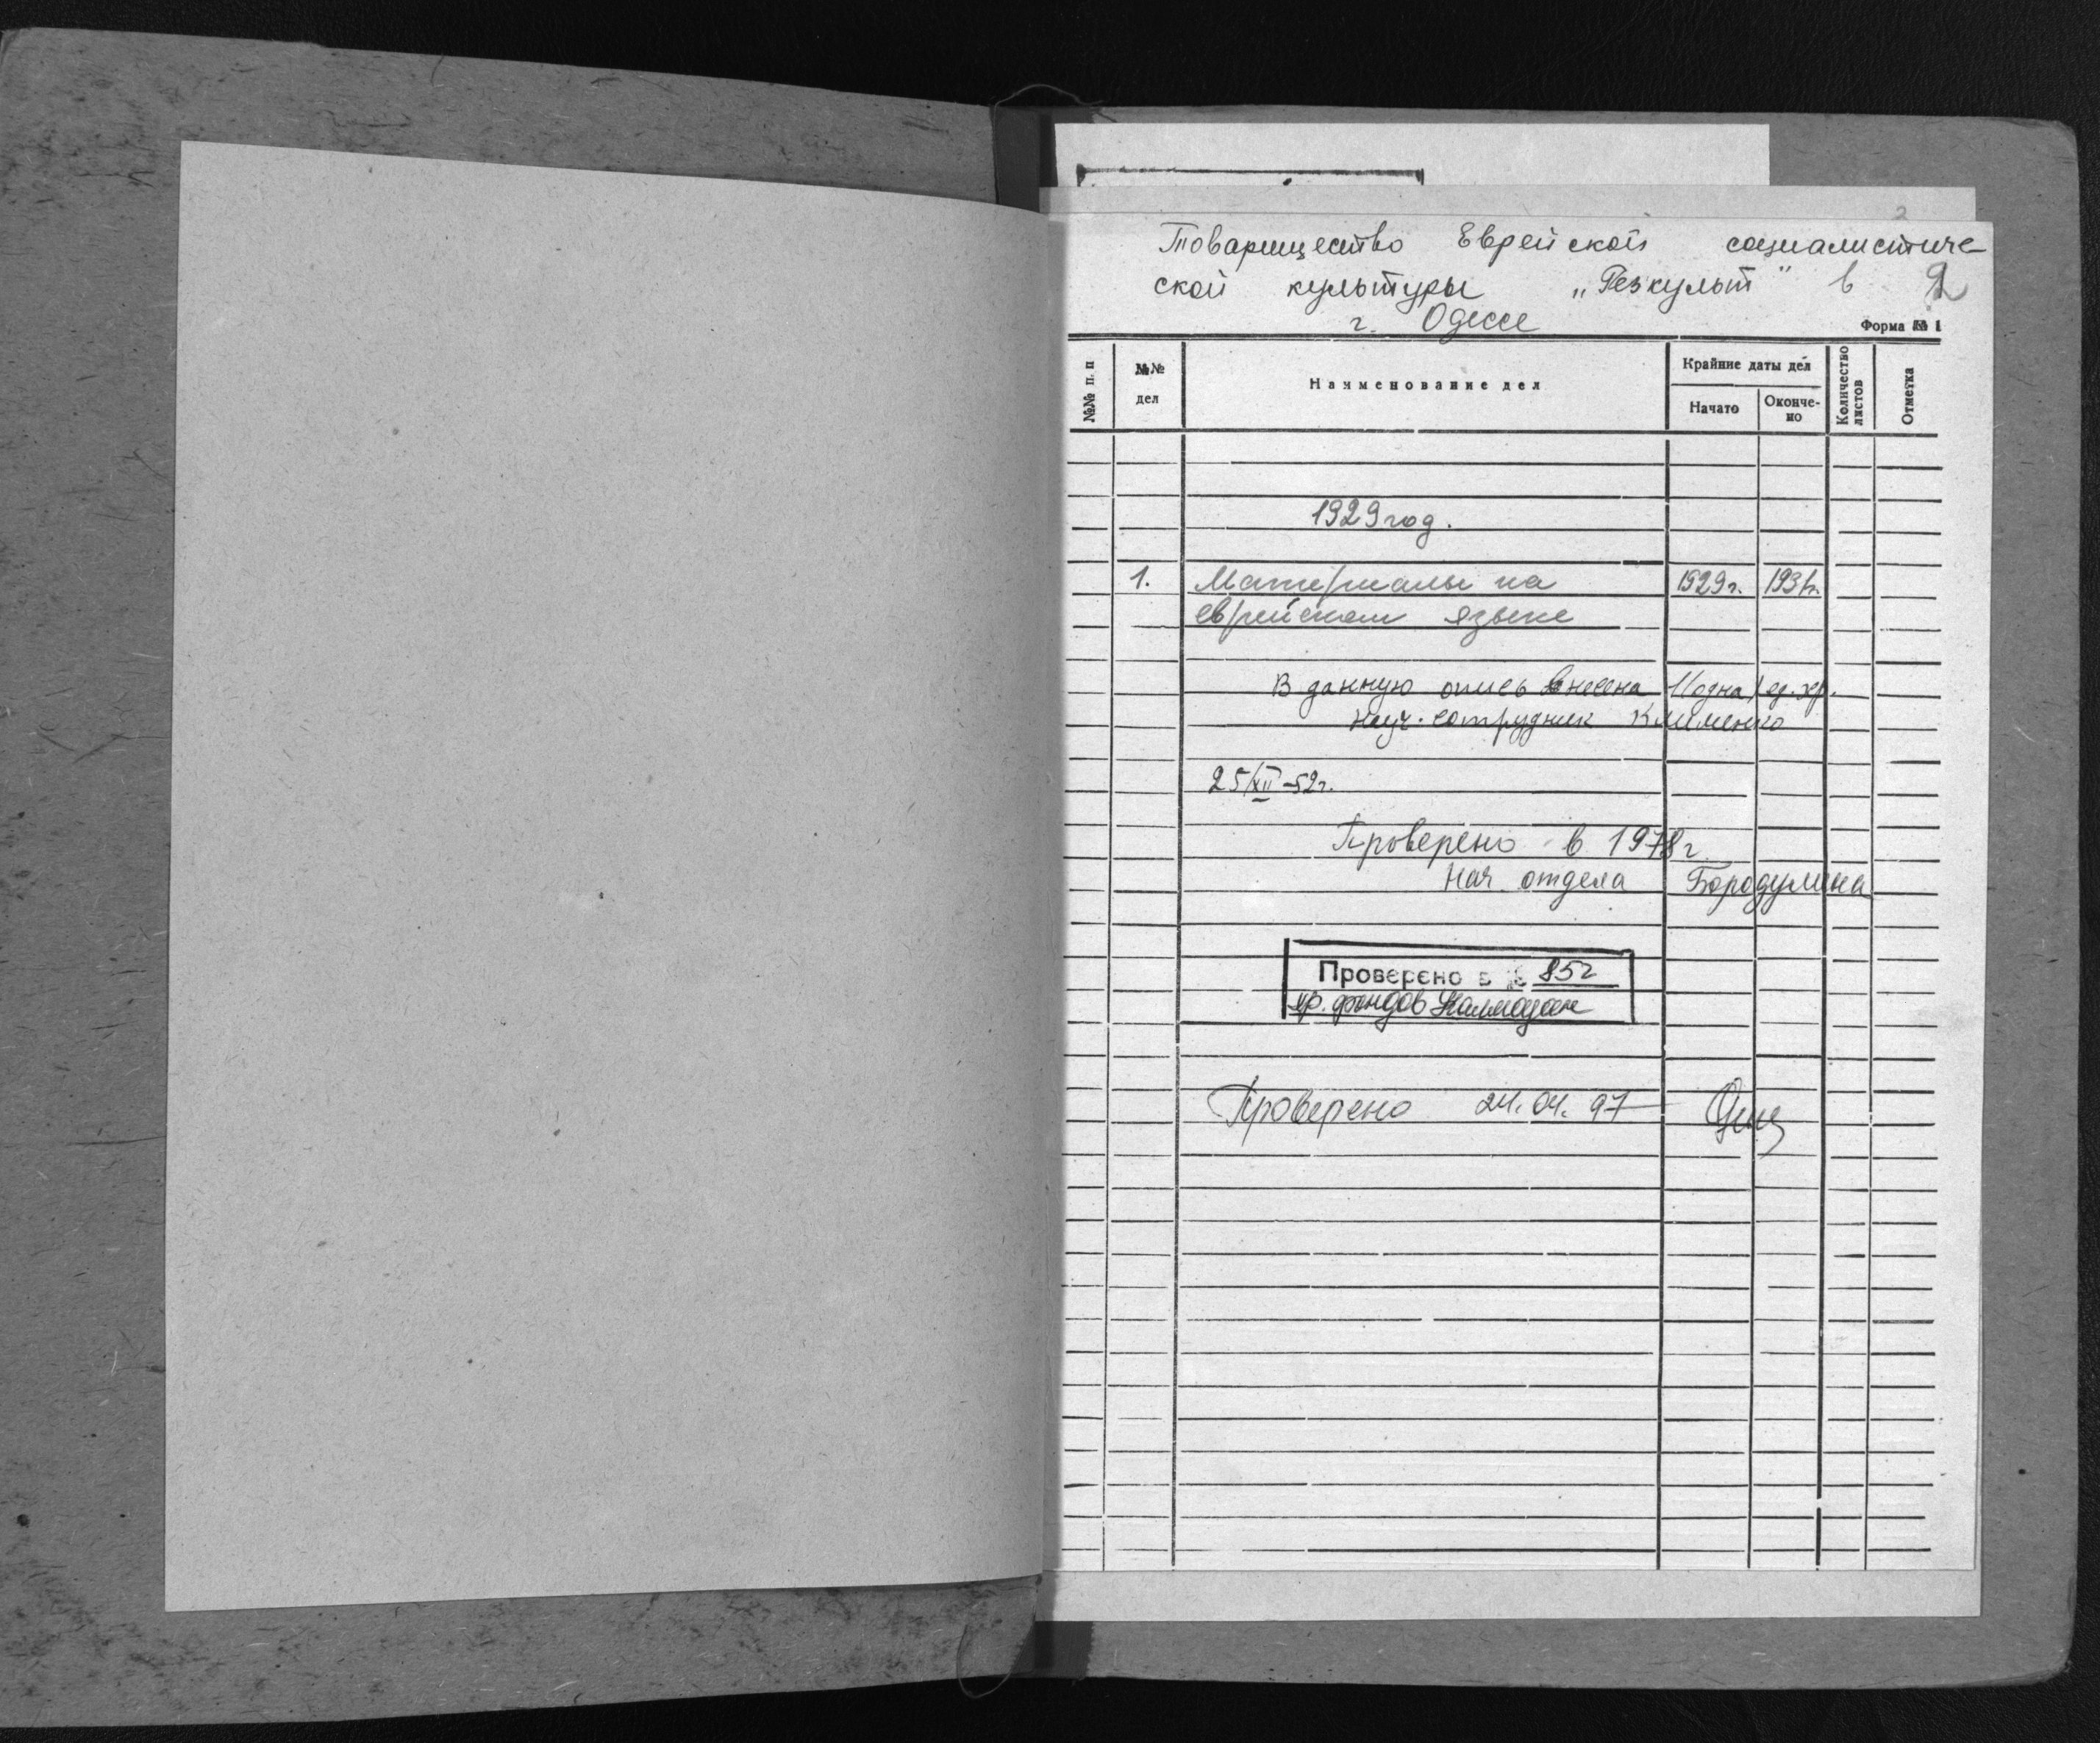 2
Товарищество Еврейской социалистиче
ской культуры „Резкульт" в
г. Одессе
Форма № 1
№№ п. п
№№ дел
Наименование дел
Крайние даты дел
Начато
Окончено
Количество листов
Отметка
1929 год.
1. Материалы на 1929г. 1931г.
еврейском языке
В данную опись внесена 1/одна/ ед. хр.
Науч. сотрудник Клименко
25/XII-52г.
Проверено в 1978г
Нач. отдела Бородулина
Проверено в 85г
хр. фондов
Проверено 24.04.97